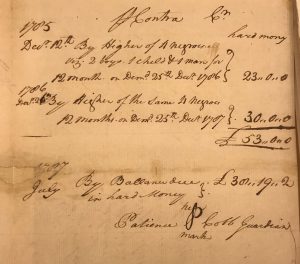 1785 P Contra Cr
hard mony
Decr. 12th By Higher of 4 Negroes
viz 2 boys 1 child & 1 man for
12 month on Demd. 25th Decr 1786 } 23..0..0
1786
By Higher of the Same 4 Negroes
12 months on Demd. 25th Decr 1787 } 30..0..0
£ 53..0..0
1797
July By Ballance due } £ 301..19..2
in hard Money
her
Patience P Cobb Guardian
mark